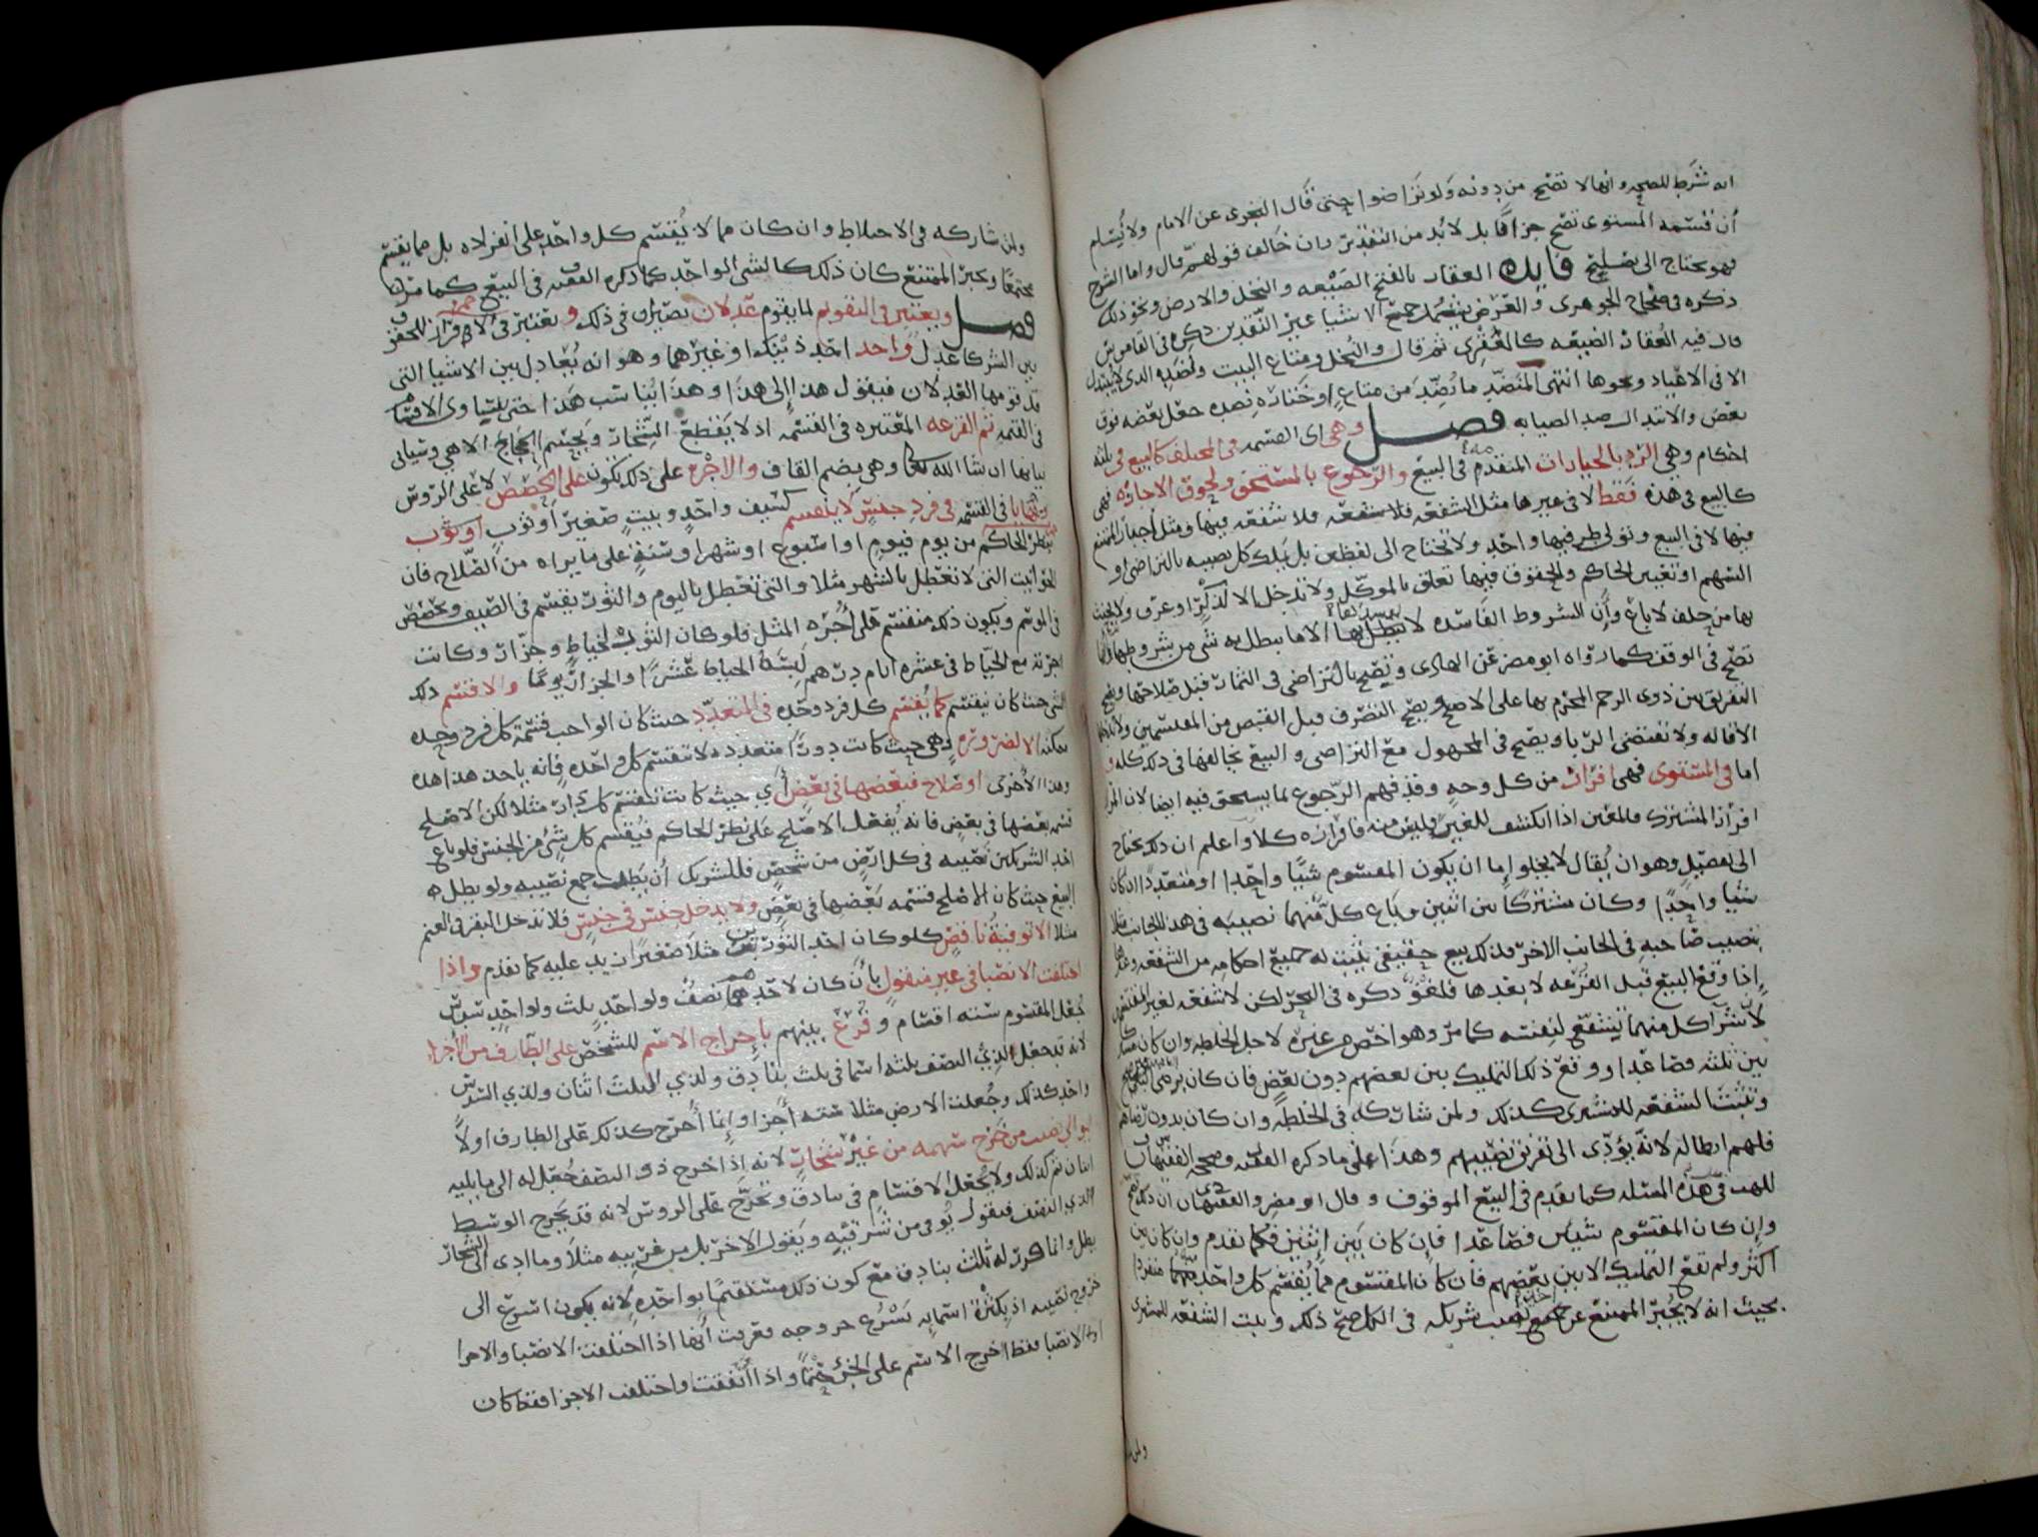 انه شرط للصحه وانها لا تصح من دونه ولو تراضوا حتى قال البحرى عن الامام ولا نسلم
أن قسمه المستوى تصح جزافا بل لا بد من التقدير وان خالف فولهم قال واما الشرح
فهو محتاج الى تصليح فايده العقار بالفتح الضيعه والنخل والارض ونحو ذلك
ذكره في صحاح الجوهرى والعرض يشمل جميع الاشيا غير النقدين ذكره فى القاموس
قال فيه العقار الضيعه كالعقرى ثم قال والنخل ومتاع البيت ونضده الذى لا يبتذل
الا فى الاعياد ونحوها انتهى المنضد ما نضد من متاع او خنازه نضده جعل بعضه فوق
بعض والابتذال ضد الصيانه فصل وهى اى القسمه فى المختلف كالبيع فى ثلثه
احكام وهي الرد بالخيارات المتقدم فى البيع والرجوع بالمستحق ولحوق الاجازه فهى
كالبيع فى هذه فقط لا فى غيرها مثل الشفعه فلا شفعه فيها ومثل اجبار الممتنع
فيها لا فى البيع وتولى طرفيها واحد ولا تحتاج الى لفظين بل يملك كل نصيبه بالتراضى او
السهم او تعيين الحاكم والحقوق فيها تعلق بالموكل ولا تدخل الا لذكر او عرف ولا يحنث
بها من حلف لا باع وأن الشروط الفاسده لا يبطل بها الا ما يبطل به شى من شروطها
تصح فى الوقف كما رواه ابو مضر عن الهادى ويصح بالتراضى فى الثمار قبل صلاحها ويصح
التفريق بين ذوى الرحم المحرم بها على الاصح ويصح التصرف قبل القبض من المقتسمين
الاقاله ولا تقتضى الربا ويصح فى المجهول مع التراضى والبيع يخالفها فى ذلك كله و
اما فى المستوى فهى افراز من كل وجه وقد فهم الرجوع بما يستحق فيه ايضا لان
افراز المشترك والمعين اذا انكشف للغير وليس منه فافرازه كلا واعلم ان ذلك محتاج
الى تفصيل وهو ان يقال لا يخلو إما ان يكون المقسوم شيًا واحدا او متعددا ان كان
شيا واحدًا وكان مشتركًا بين اثنين وباع كل منهما نصيبه فى هذا الجانب مثلا
بنصيب صاحبه فى الجانب الاخر فذلك بيع حقيقى يثبت له جميع احكامه من الشفعه وغيرها
إذا وقع البيع قبل القرعه لا بعدها فلغو ذكره فى البحر لكن لا شفعه لغير المقتسمين
لأن شرا كل منهما يشفع لنفسه كما مر وهو اخص من غيره لاجل الخلطه وان كان
بين ثلثه فصاعدا ووقع ذلك التمليك بين بعضهم دون بعض فان كان برضى
وتثبت الشفعه للمشترى كذلك ولمن شاركه فى الخلطه وان كان بدون رضاهم
فلهم ابطاله لانه يؤدى الى تفريق نصيبهم وهذا على ما ذكره الفقيه وصححه الفقيهان
للمذهب فى هذه المسئله كما تقدم فى البيع الموقوف وقال ابو مضر والفقيهان ان ذلك
وإن كان المقسوم شيئين فصاعدا فإن كان بين إثنين فكما تقدم وان كان بين
اكثر ولم تقع التمليك الا بين بعضهم فان كان المقسوم مما يقسم كل واحد منهما منفردا
بحيث انه لا يجبر الممتنع عن جمع نصيب شريكه فى الكل صح ذلك وثبت الشفعه للمشترى
ولمن شاركه فى الاختلاط وان كان مما لا يُقسم كل واحد على انفراده بل مما يقسم
مجتمعا ويجبر الممتنع كان ذلك كالشى الواحد كما ذكره الفقيه فى البيع كما مر لنا
فصل ويعتبر فى التقويم لما يقوم عدلان بصيران فى ذلك و تعتبر فى الافراز للحقوق
بين الشركا عدل واحد اتحد ذينك او غيرهما وهو انه يُعادل بين الاشيا التى
قد قومها العدلان فيقول هذا إلى هذا وهذا يناسب هذا حتى يتساوى الاقسام
فى القيمه ثم القرعه المعتبره فى القسمه اذ لا يقطع الشجار ويحسم اللجاج الا هى وسياتى
بيانها ان شا الله تعالى وهى بضم القاف والاجره على ذلك تكون على الحصص لا على الروس
ويهايا فى القسمه فى فرد جنس لا ينقسم كسيف واحد وبيت صغير أو ثوب او ثوب
بنظر الحاكم من يوم فيوم او اسبوع او شهر او سنة على ما يراه من الصلاح فان
الحوانيت التى لا تعطل بالشهر مثلا والتى تعطل باليوم والثوب يقسم فى الصيف
فى الموسم ويكون ذلك منقسم على أجره المثل فلو كان الثوب لخياط وخراز وكانت
اجرته مع الخياط فى عشره ايام درهم لبسه الخياط عشرا والخراز يومًا والا قسم ذلك
الشى حيث كان ينقسم كما يُقسم كل فرد وحده فى المتعدد حيث كان الواجب قسمة كل فرد وحده
يمكنه الا لضروره وهى حيث كانت دورًا متعدده لا تنقسم كل واحده فانه ياخذ هذا هذه
وهذا الأخرى او صلاح فبعضها فى بعض أي حيث كانت تنقسم كل دار مثلا لكن الاصلح
قسمه بعضها فى بعض فانه يُفعل الاصلح على نظر الحاكم فيُقسم كل شئ من الجنس فلو باع
احد الشريكين نصيبه فى كل ارض من شخص فللشريك أن يطلب جمع نصيبه ولو بطل ه
البيع حيث كان الاصلح قسمه بعضها فى بعض ولا يدخل جنس فى جنس فلا تدخل البقر فى الغنم
مثلا الا توفيةُ ناقص كلو كان احد الثورين مثلا صغيرا زيد عليه كما تقدم واذا
اختلفت الانصبا فى غير منقول بان كان لاحدهم نصف ولواحد ثلث ولواحد سدس
جُعل المقسوم سته اقسام وقُرع بينهم بإخراج الاسم للشخص على الطارف من الاجزا
لانه تجعل لذى النصف ثلثه اسما فى ثلث بنادق ولذى الثلث اثنان ولذى السدس
واحد كذلك وجُعلت الارض مثلا سته أجزا وإنما أخرج كذلك على الطارف اولاً
ليوالى نصيب من خرج سهمه من غير شجار لانه إذا خرج ذو النصف جُعل له الى ما يليه
اثنان ثم كذلك ولا تجعل الاقسام فى بنادق وتخرج على الروس لانه قد يخرج الوسط
لذى النصف فيقول يُوفى من شرقيه ويقول الاخر بل من غربيه مثلا وما ادى الى الشجار
بطل وانما كرر له ثلث بنادق مع كون ذلك مستقيمًا بواحده لانه يكون اسرع الى
خروج نصيبه اذ بكثرة اسمايه يسرُع خروجه فعرفت أنها اذا اختلفت الانصبا والاجزا
او الانصبا فقط اخرج الاسم على الجزؤ حتمًا واذا اتفقت واختلفت الاجزا فقط كان